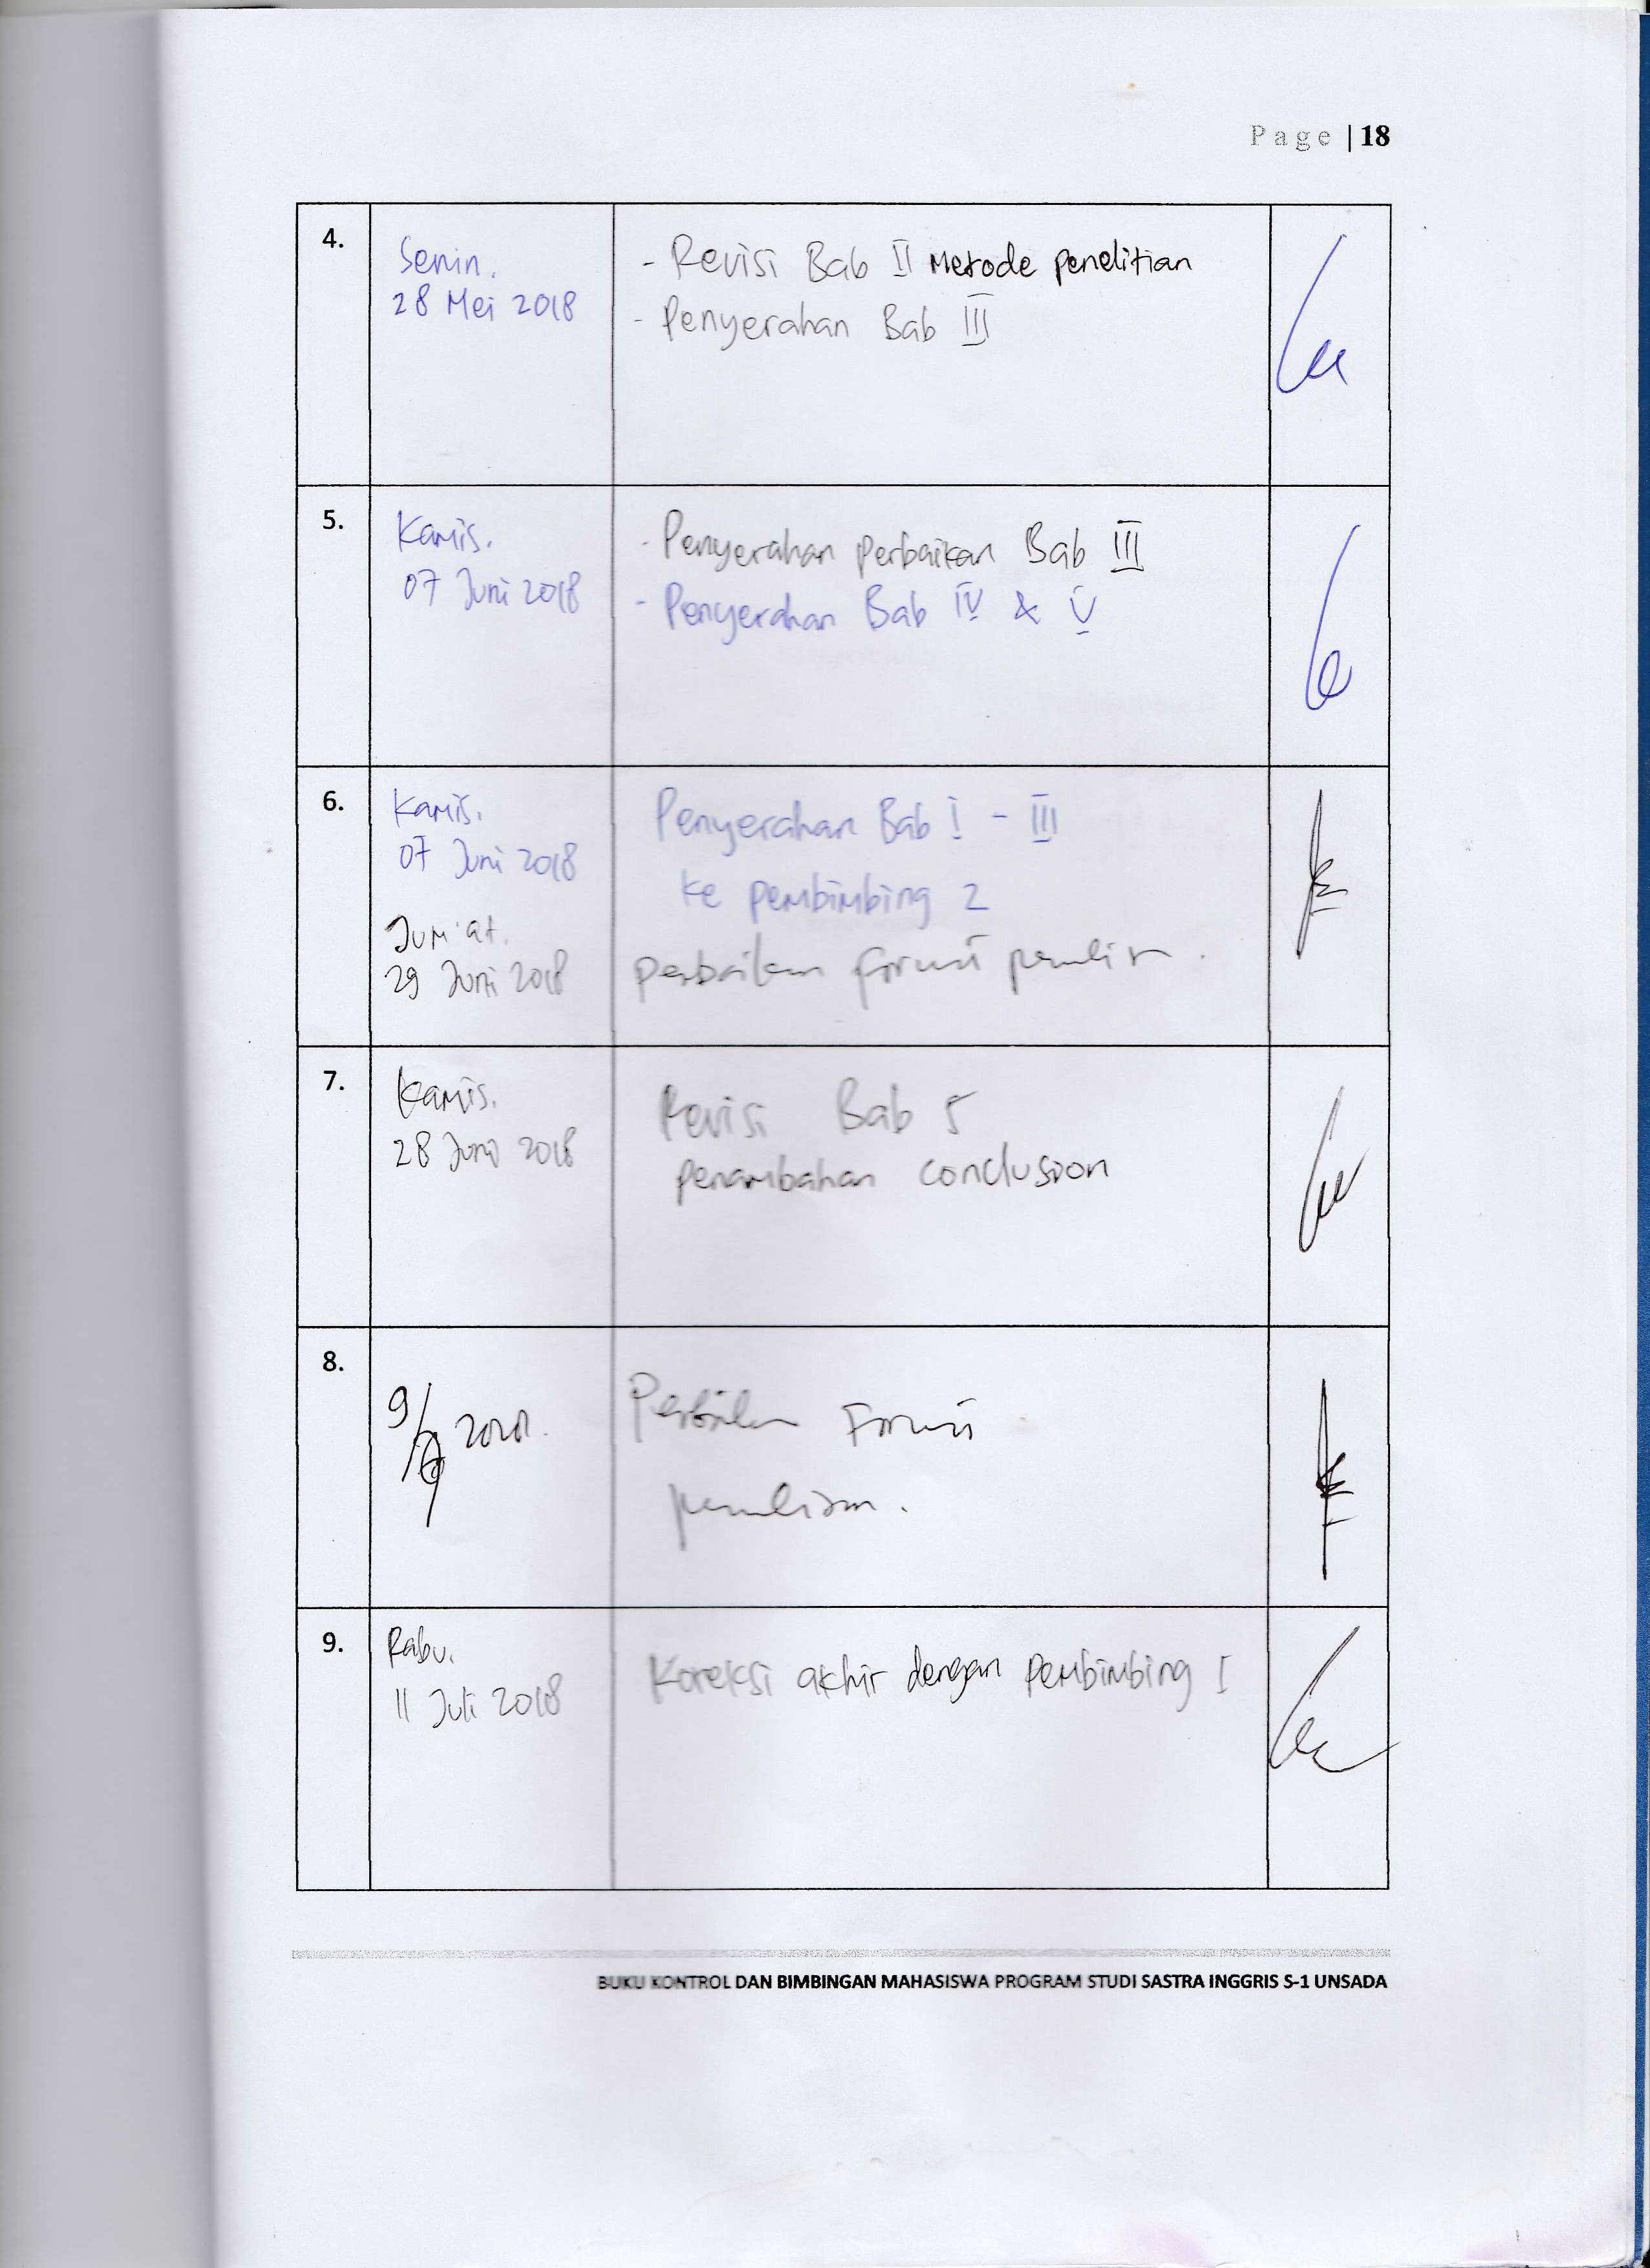 Page | 18
4.
Senin.
28 Mei 2018
- Revisi Bab II Metode penelitian
- Penyerahan Bab III
5.
Kamis.
07 Juni 2018
- Penyerahan Perbaikan Bab III
- Penyerahan Bab IV & V
6.
Kamis.
07 Juni 2018
Jum'at.
29 Juni 2018
Penyerahan Bab I - III
ke pembimbing 2
perbaikan
7.
Kamis.
28 Juni 2018
Revisi Bab 5
penambahan conclusion
8.
9/7
9.
Rabu.
11 Juli 2018
Koreksi akhir dengan Pembimbing I
BUKU KONTROL DAN BIMBINGAN MAHASISWA PROGRAM STUDI SASTRA INGGRIS S-1 UNSADA